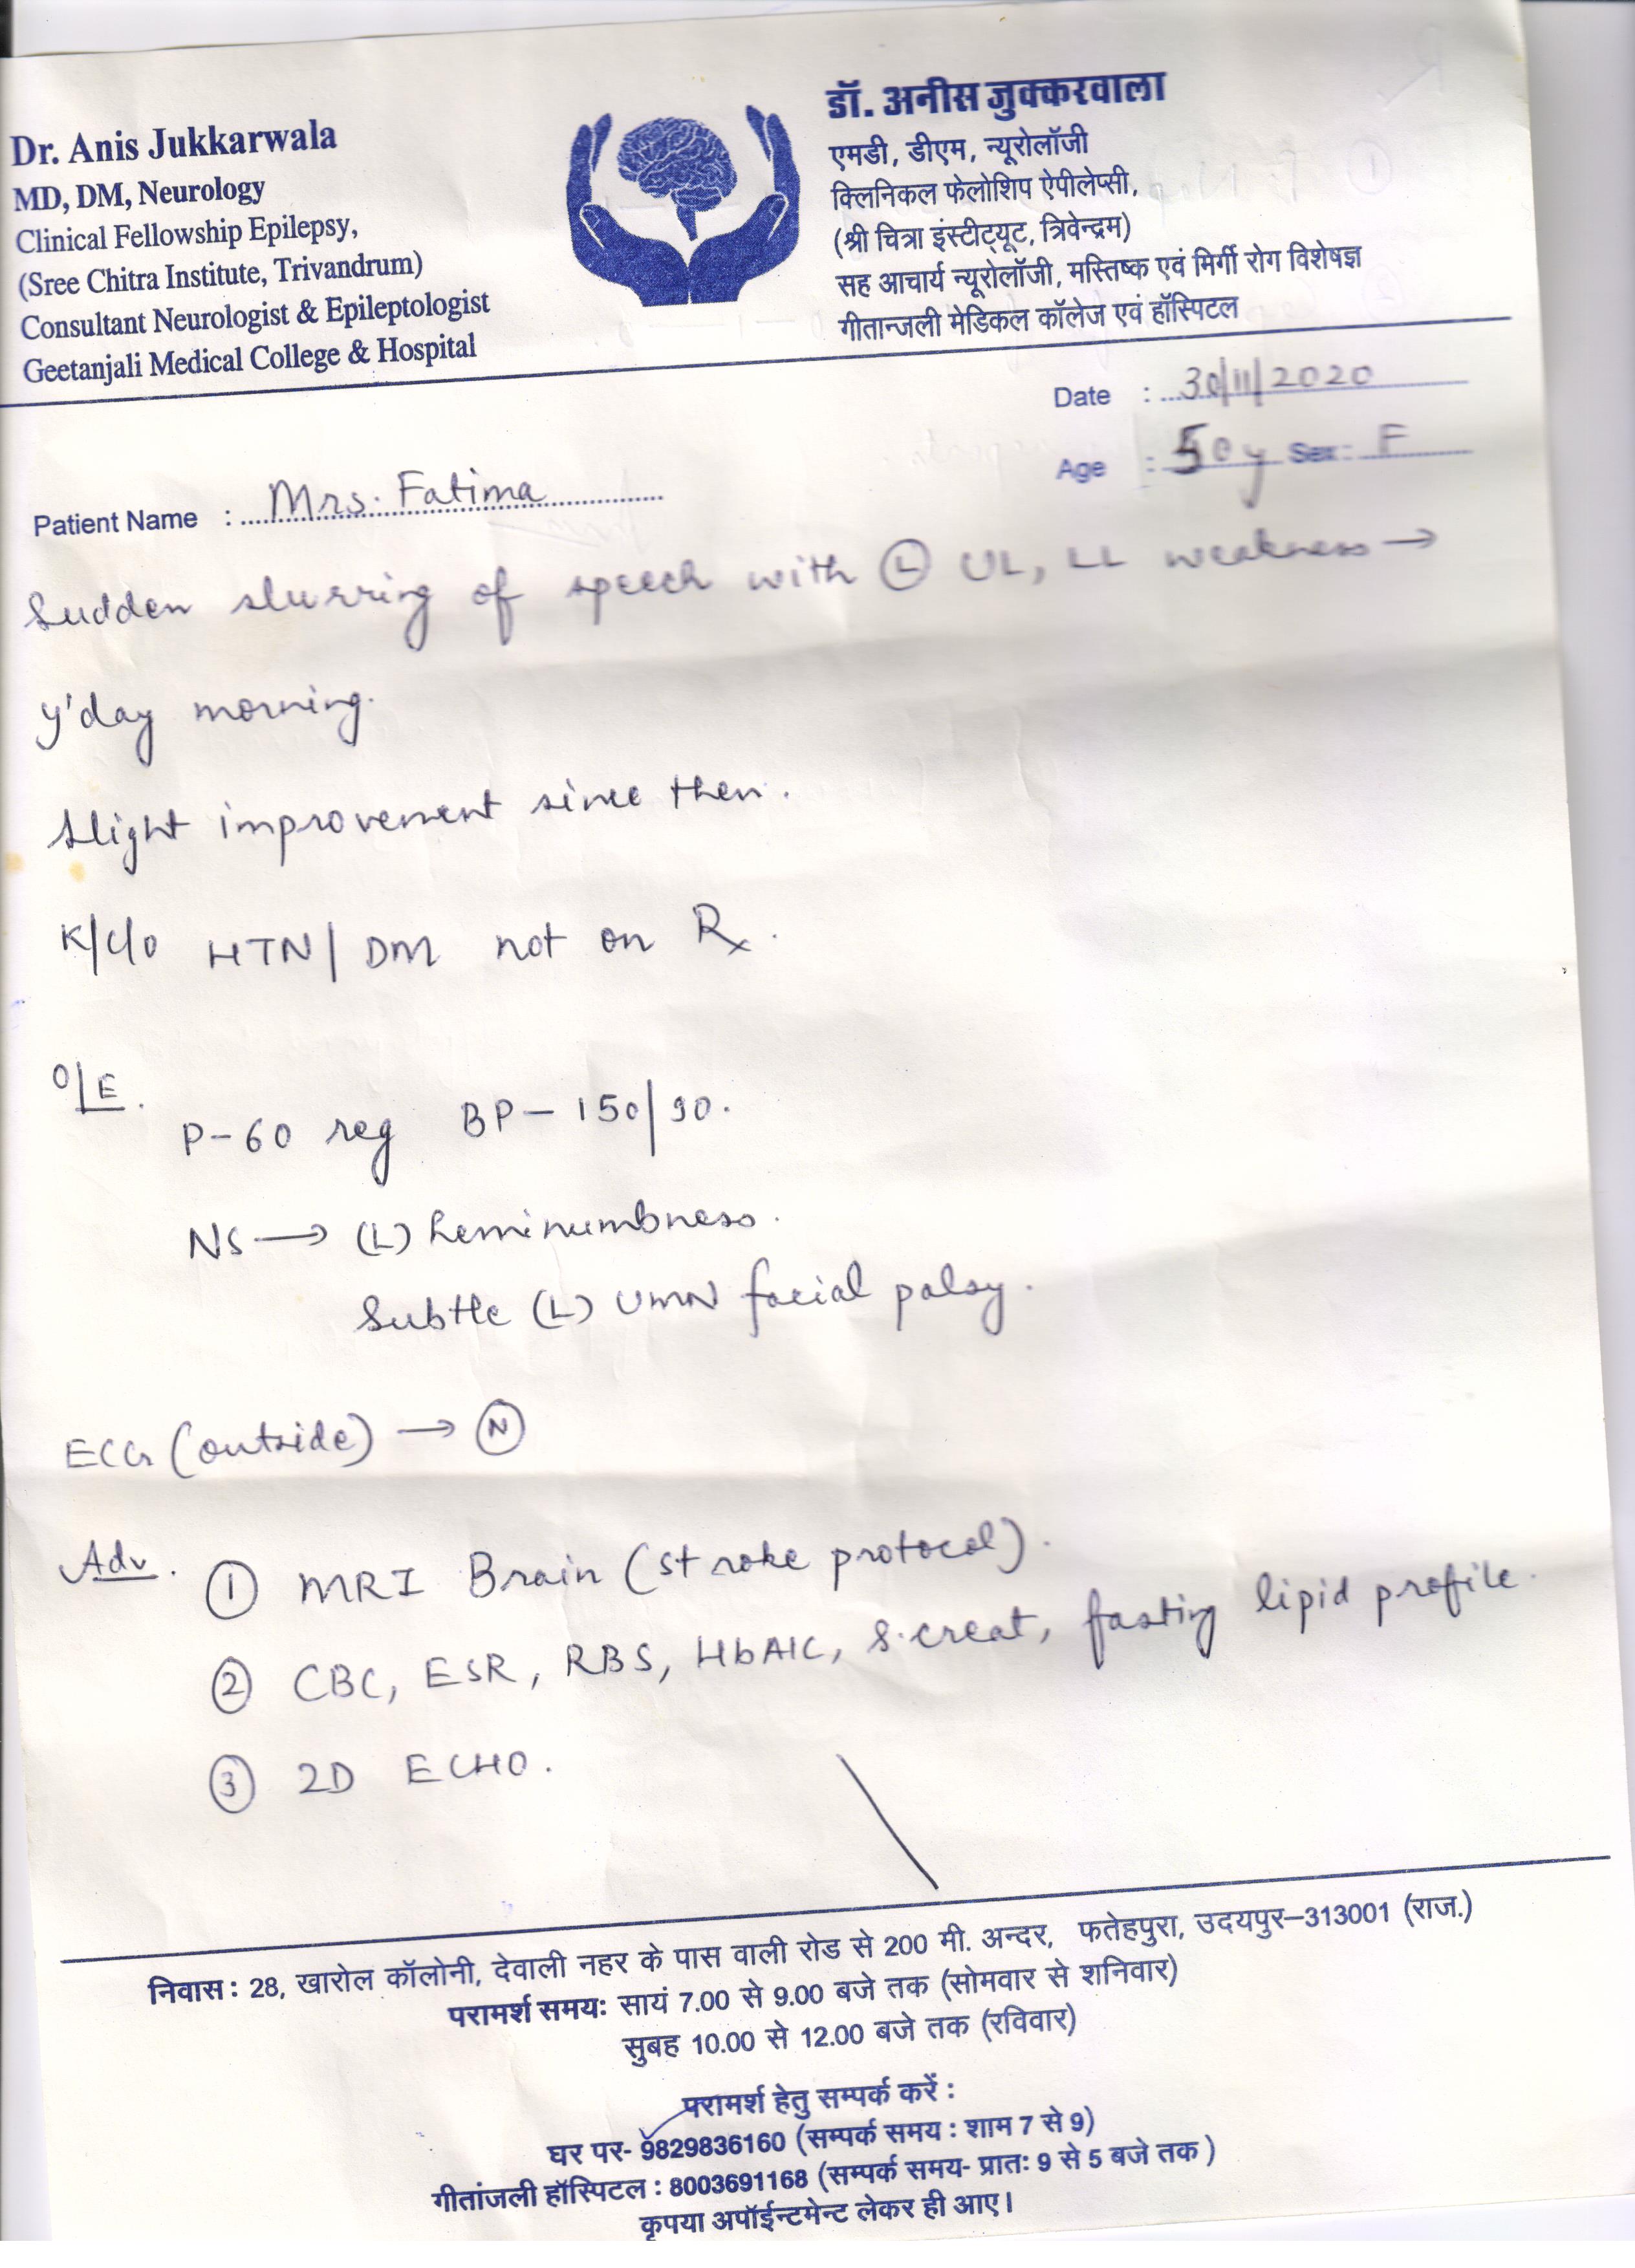 Dr. Anis Jukkarwala
MD, DM, Neurology
Clinical Fellowship Epilepsy,
(Sree Chitra Institute, Trivandrum)
Consultant Neurologist & Epileptologist
Geetanjali Medical College & Hospital
डॉ. अनीस जुक्करवाला
एमडी, डीएम, न्यूरोलॉजी
क्लिनिकल फेलोशिप ऐपीलेप्सी,
(श्री चित्रा इंस्टीट्यूट, त्रिवेन्द्रम)
सह आचार्य न्यूरोलॉजी, मस्तिष्क एवं मिर्गी रोग विशेषज्ञ
गीतान्जली मेडिकल कॉलेज एवं हॉस्पिटल
Date : 30/11/2020
Age : 50y Sex: F
Patient Name : Mrs. Fatima
Sudden slurring of speech with Ⓛ UL, LL weakness →
y'day morning.
Slight improvement since then.
K/c/o HTN/DM not on Rx.
O/E.
P-60 reg BP-150/90.
NS → (L) heminumbness.
Subtle (L) UMN facial palsy.
ECG (outside) → Ⓝ
Adv. ① MRI Brain (stroke protocol).
② CBC, ESR, RBS, HbA1C, S.creat, fasting lipid profile.
③ 2D ECHO.
निवास: 28, खारोल कॉलोनी, देवाली नहर के पास वाली रोड से 200 मी. अन्दर, फतेहपुरा, उदयपुर-313001 (राज.)
परामर्श समय: सायं 7.00 से 9.00 बजे तक (सोमवार से शनिवार)
सुबह 10.00 से 12.00 बजे तक (रविवार)
परामर्श हेतु सम्पर्क करें :
घर पर- 9829836160 (सम्पर्क समय : शाम 7 से 9)
गीतांजली हॉस्पिटल : 8003691168 (सम्पर्क समय- प्रात: 9 से 5 बजे तक )
कृपया अपॉईन्टमेन्ट लेकर ही आए।